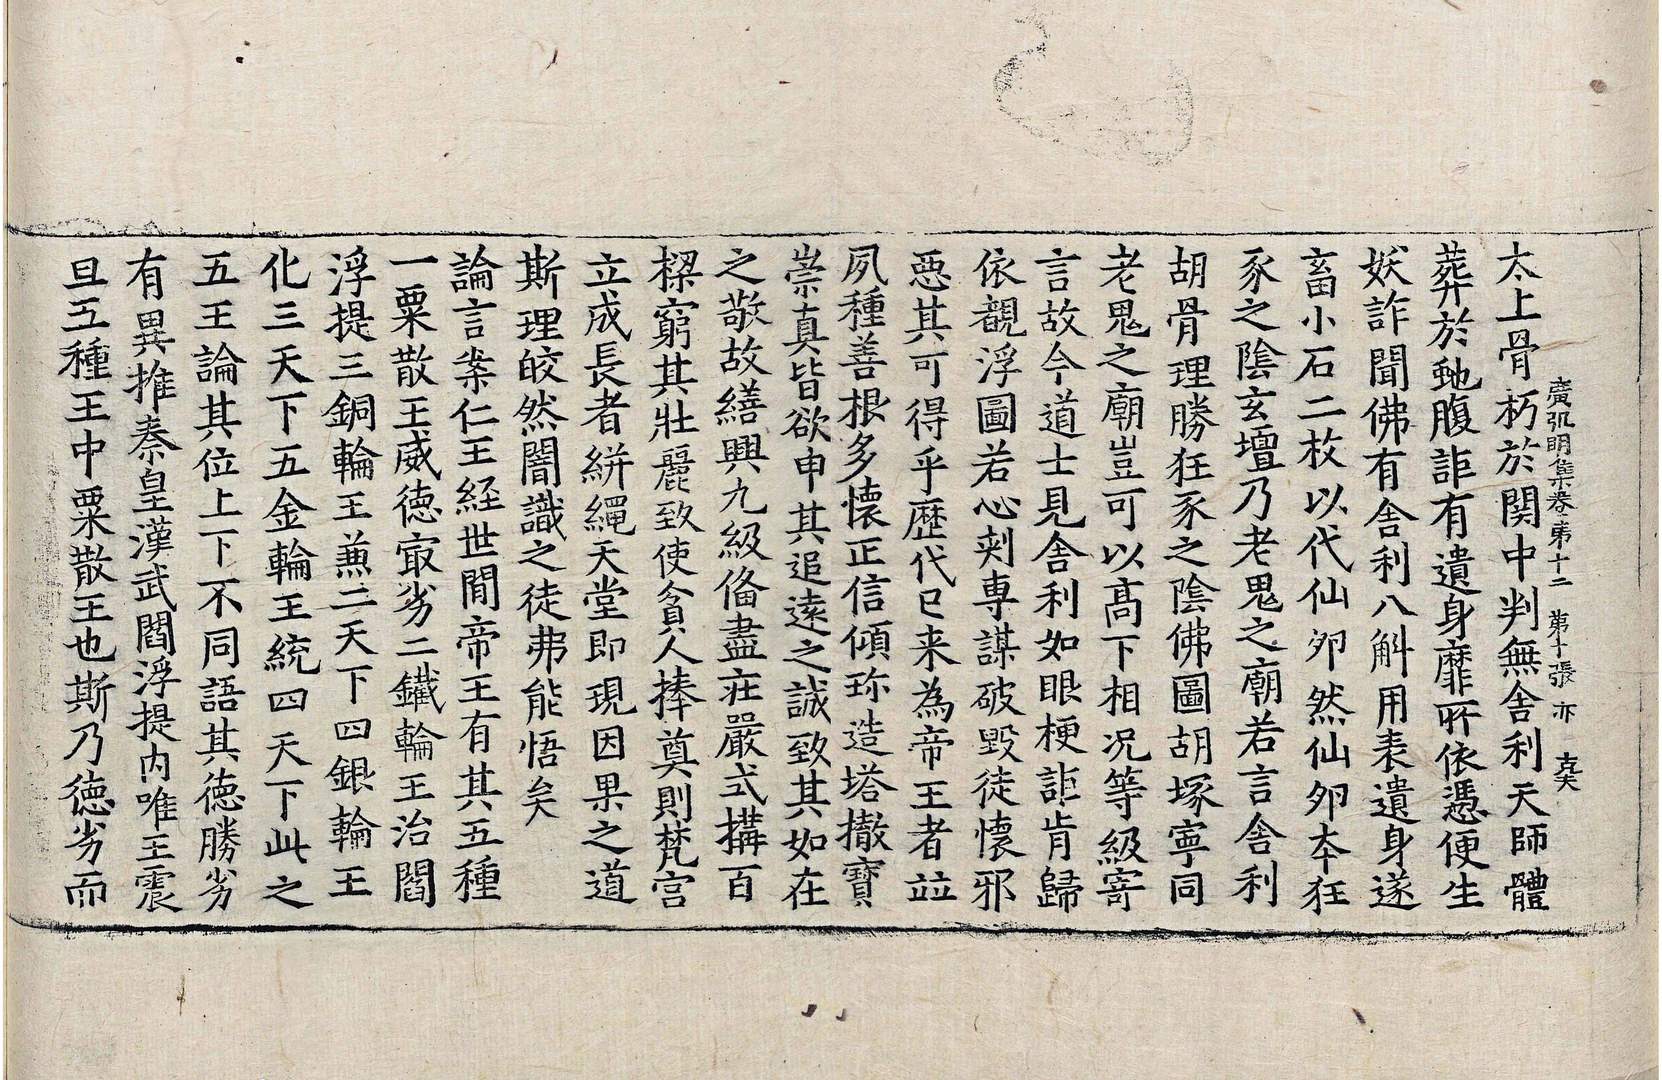 太上骨朽於関中判無舍利天師體
廣弘明集卷第十二 第十張 亦 克夫
葬於虵腹詎有遺身靡所依憑便生
妖詐聞佛有舍利八斛用表遺身遂
畜小石二枚以代仙夘然仙夘本狂
豕之陰玄壇乃老鬼之廟若言舍利
胡骨理勝狂豕之陰佛圖胡塚寧同
老鬼之廟豈可以髙下相況等級寄
言故今道士見舍利如眼梗詎肯歸
依覩浮圖若心刾專謀破毀徒懷邪
惡其可得乎歷代已来為帝王者竝
夙種善根多懷正信傾珎造塔撤寶
崇真皆欲申其追遠之誠致其如在
之敬故繕興九級俻盡莊嚴式搆百
樑窮其壯麗致使貧人捧奠則梵宫
立成長者絣繩天堂即現因果之道
斯理皎然闇識之徒弗能悟矣
論言案仁王経世間帝王有其五種
一粟散王威徳㝡劣二鐵輪王治閻
浮提三銅輪王蕪二天下四銀輪王
化三天下五金輪王統四天下此之
五王論其位上下不同語其徳勝劣
有異推秦皇漢武閻浮提内唯王震
旦五種王中粟散王也斯乃徳劣而